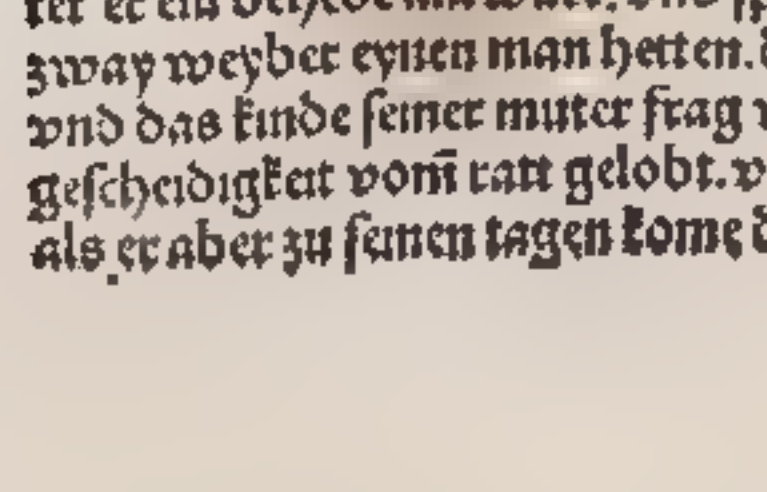 zway weyber eynen man hetten.
vnd das kinde ſeiner muter frag
geſcheidigkeit vom̄ ratt gelobt. v
als er aber zu ſeinen tagen kome d